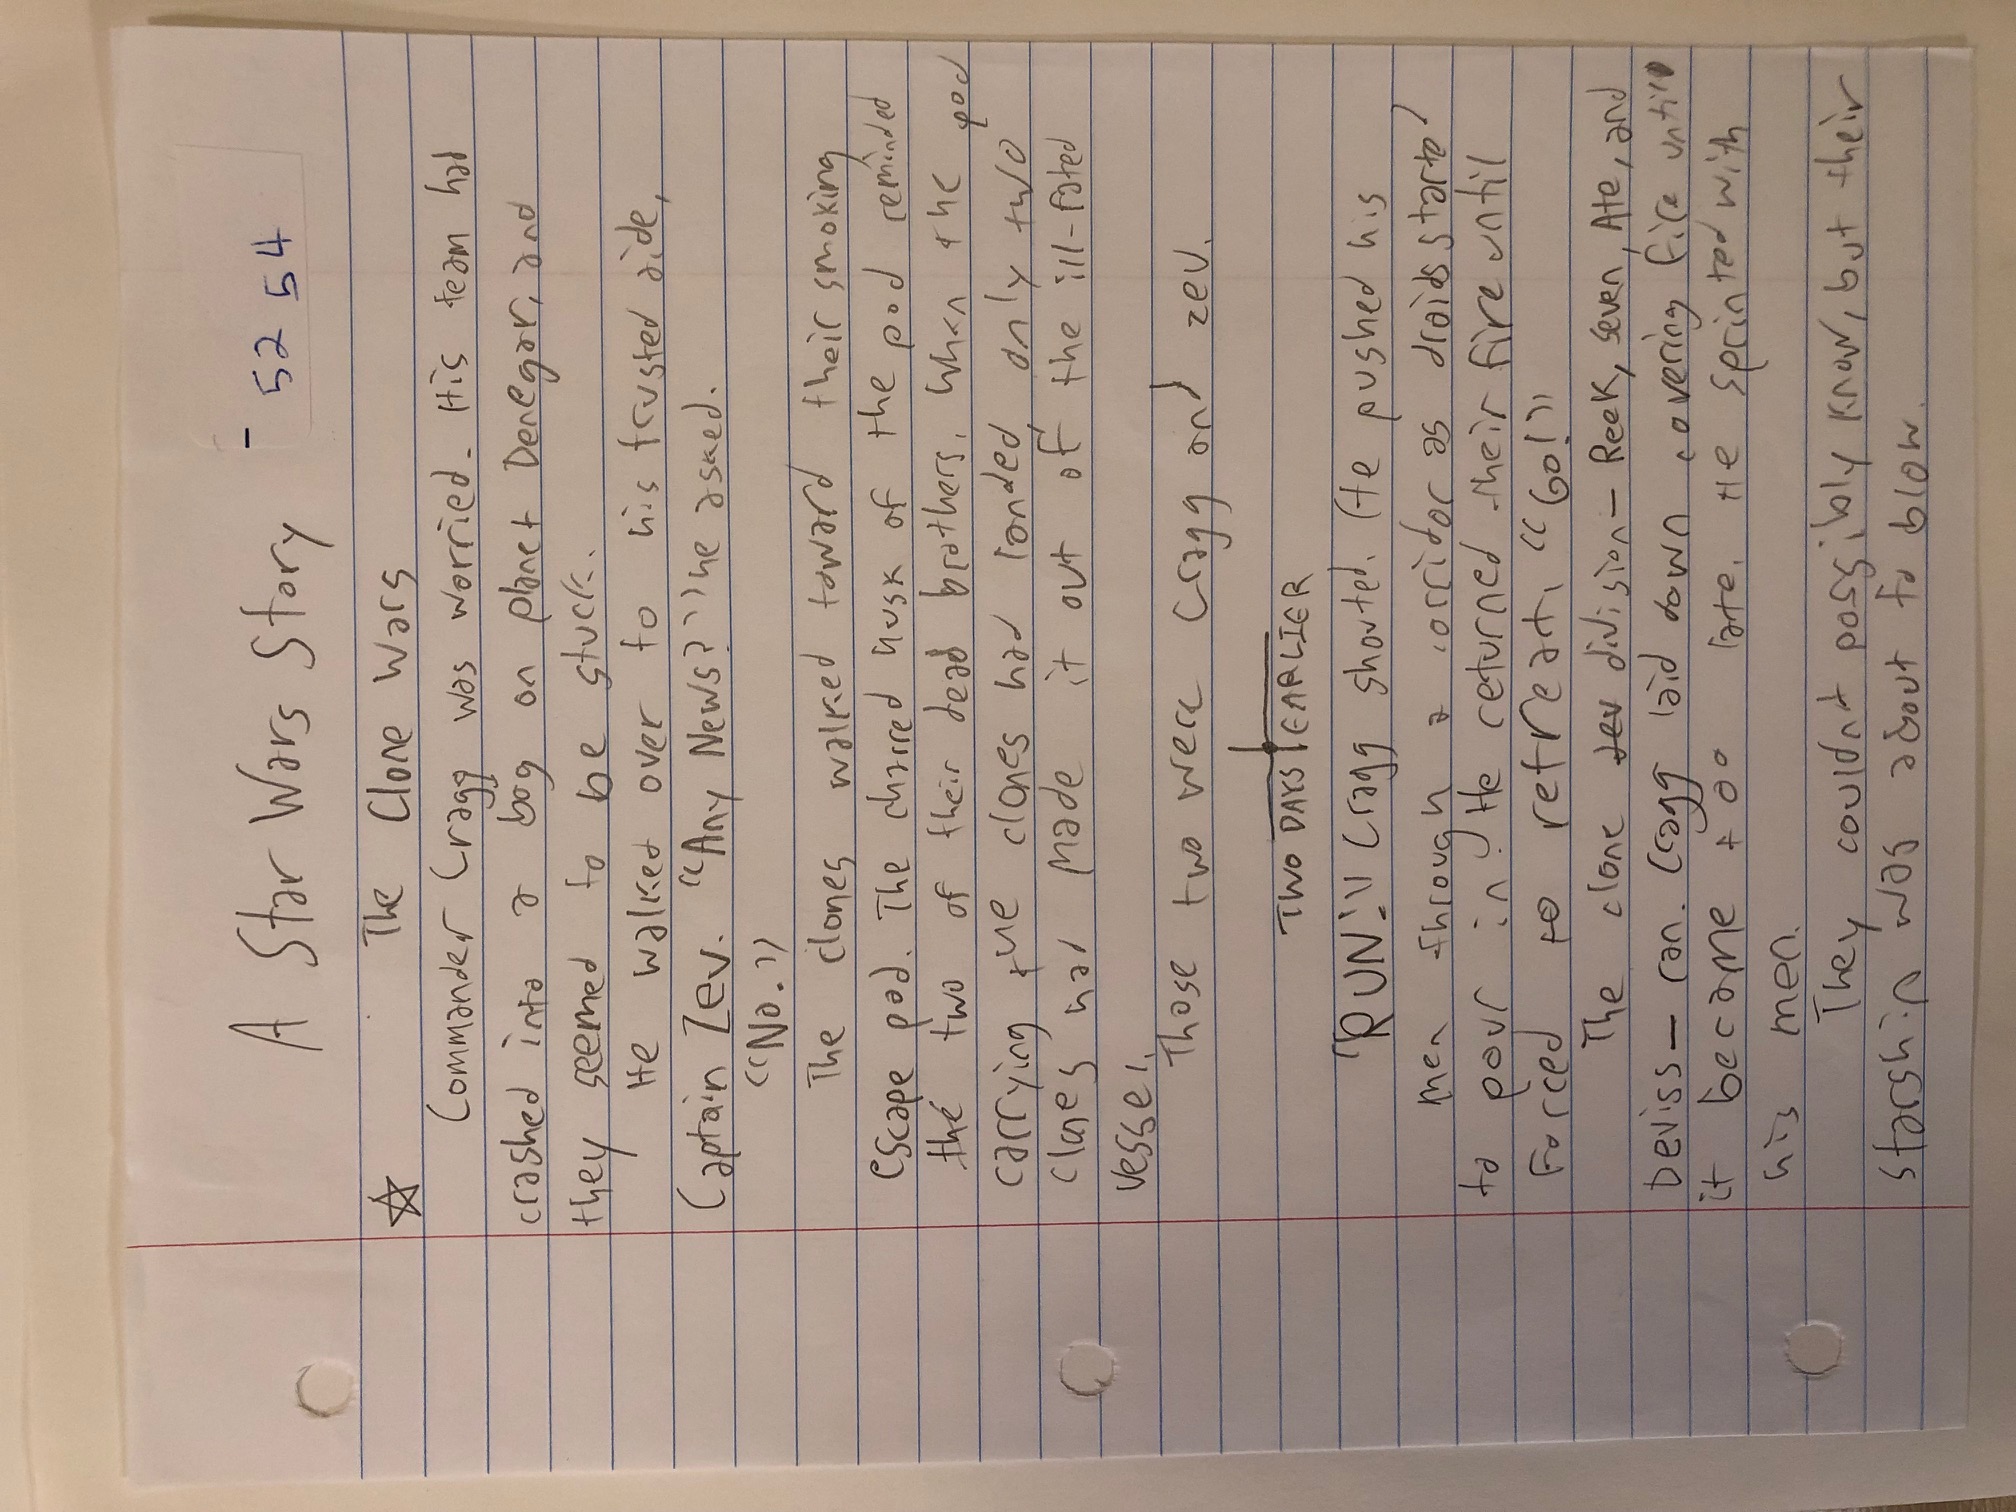 A Star Wars Story
- 52 54
The Clone Wars
Commander Cragg was worried. His team had
crashed into a bog on planet Denegar, and
they seemed to be stuck.
He walked over to his trusted aide,
Captain Zev. "Any News?" he asked.
"No."
The clones walked toward their smoking
escape pod. The charred husk of the pod reminded
the two of their dead brothers. When the pod
carrying the clones had landed, only two
clones had made it out of the ill-fated
vessel.
Those two were Cragg and Zev.
TWO DAYS EARLIER
"RUN!" Cragg shouted. He pushed his
men through a corridor as droids started
to pour in. He returned their fire until
forced to retreat. "Go!"
The clone division — Reek, Seven, Ate, and
Deviss — ran. Cragg laid down covering fire until
it became too late. He sprinted with
his men.
They couldn't possibly know, but their
starship was about to blow.